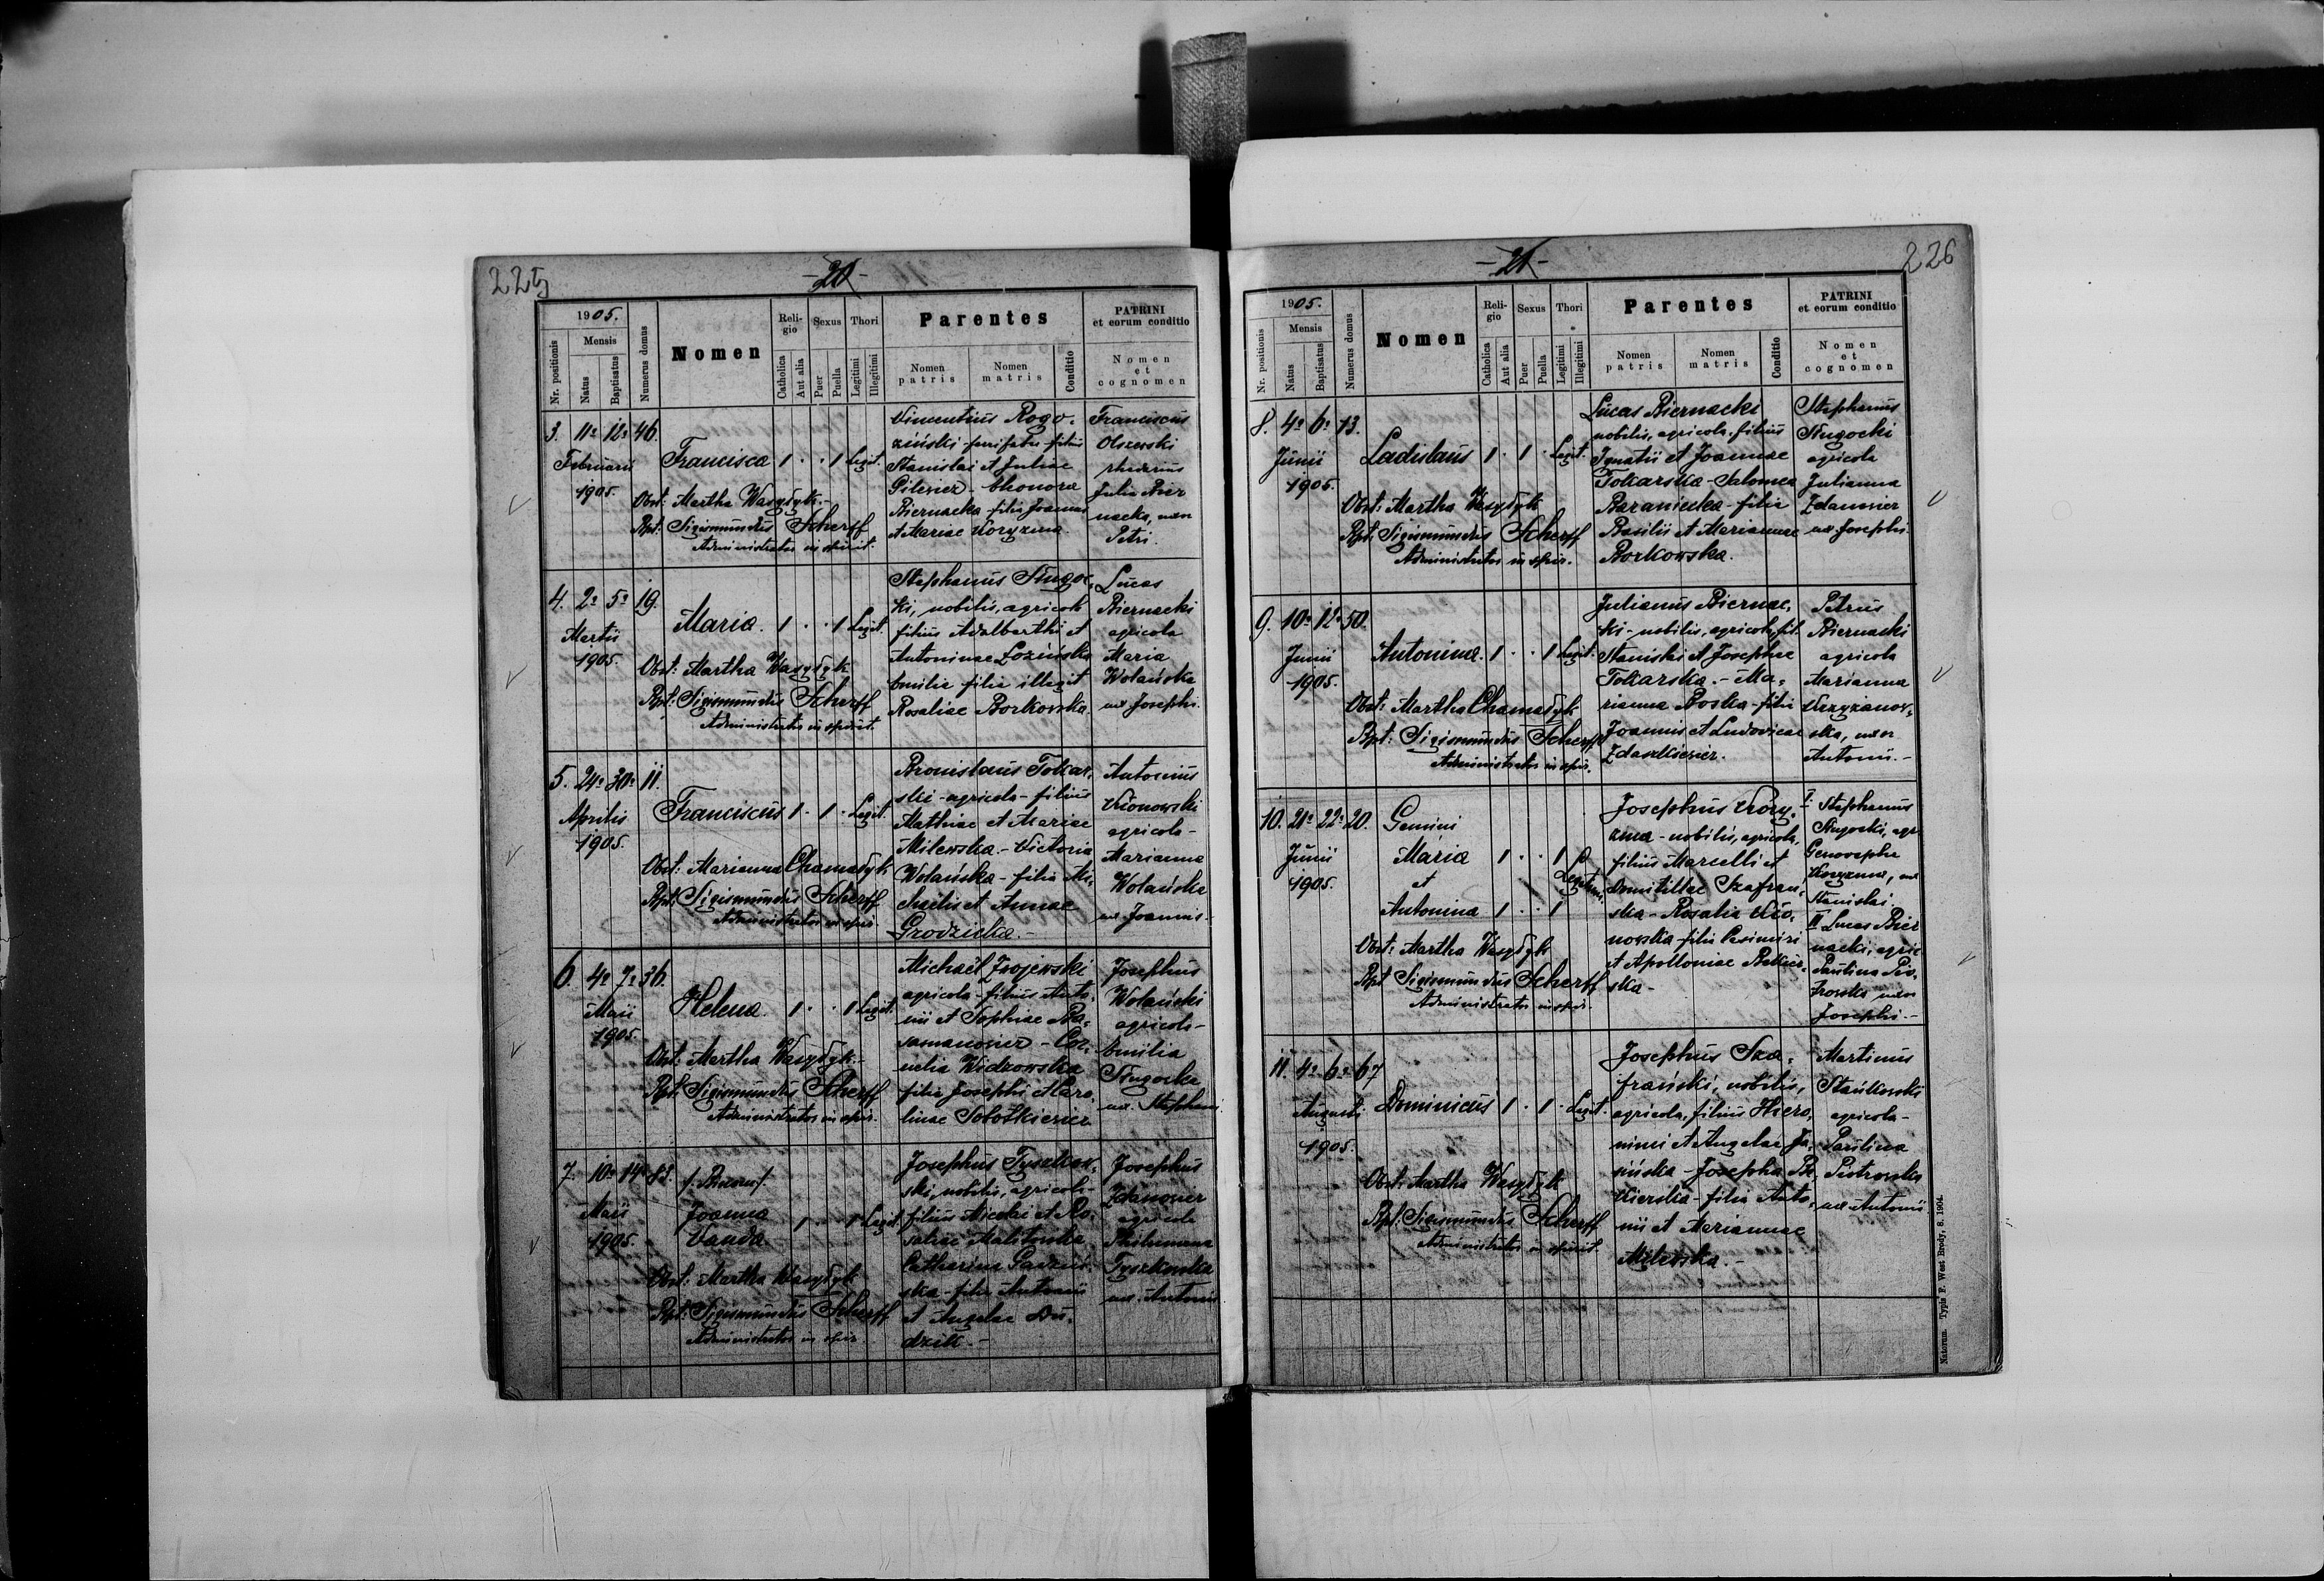 225
-20-
1905.
Mensis
Nr. positionis
Natus
Baptisatus
Numerus domus
Nomen
Religio
Catholica
Aut alia
Sexus
Puer
Puella
Thori
Legitimi
Illegitimi
Parentes
Nomen patris
Nomen matris
Conditio
PATRINI
et eorum conditio
Nomen
et
cognomen
3. 11a 12a 46.
Februarii
1905.
Francisca 1 . . 1 Legit.
Obst: Martha Wasyłyk.-
Bpt: Sigismundus Scherff
Administrator in spirit.
Vincentius Rogo-
ziński filius
Stanislai et Juliae
Eleonora
Biernacka - filia Joannis
et Mariae Koryzma.
Franciscus
Olszewski
Julia Bier
nacka, uxor
Petri.
4. 2a 5a 19.
Martii
1905.
Maria. 1 . . 1 Legit.
Obst: Martha Wasyłyk
Bpt: Sigismundus Scherff
Administrator in spirit.
Stephanus Sługoc-
ki, nobilis, agricola
filius Adalberthi et
Antoninae Łozińska
Emilia filia illegit
Rosaliae Borkowska.
Lucas
Biernacki
agricola
Maria
Wolańska
ux Josephi.
5. 24a 30a 11.
Aprilis
1905.
Franciscus 1 . 1 . Legit.
Obst: Marianna Chamadyk
Bpt: Sigismundus Scherff
Administrator in spir.
Bronislaus Tokar-
ski - agricola - filius
Mathiae et Mariae
Milewska. - Victoria
Wolańska - filia Mi-
chaelis et Annae
Grodzicka. -
Antonius
agricola -
Marianna
Wolańska
ux Joannis -
6. 4a 7a 36.
Maii
1905.
Helena. 1 . . 1 Legit.
Obst: Martha Wasyłyk.-
Bpt: Sigismundus Scherff
Administrator in spir.
Michaël
agricola - filius Anto-
nii et Sophiae
- Cor-
nelia Widzowska
filia Josephi et Caro-
linae
Josephus
Wolański
agricola -
Emilia
Sługocka
ux. Stephani
7. 10a 14a 83.
Maii
1905.
Joanna
Vanda 1 . . 1 Legit.
Obst: Martha Wasyłyk
Bpt: Sigismundus Scherff
Administrator in spir.
Josephus Tyszkow-
ski, nobilis, agricola -
filius Nicolai et Ro-
saliae
Catharina
ska - filia Antonii
et Angelae Du-
dzik. -
Josephus
Zdanowicz
agricola
Philumena
Tyszkowska
ux. Antonii
226
-21-
1905.
Mensis
Nr. positionis
Natus
Baptisatus
Numerus domus
Nomen
Religio
Catholica
Aut alia
Sexus
Puer
Puella
Thori
Legitimi
Illegitimi
Parentes
Nomen patris
Nomen matris
Conditio
PATRINI
et eorum conditio
Nomen
et
cognomen
8. 4a 6a 13.
Junii
1905.
Ladislaus 1 . 1 . Legit.
Obst: Martha Wasyłyk
Bpt: Sigismundus Scherff
Administrator in spir.
Lucas Biernacki
nobilis, agricola, filius
Ignatii et Joannae
Tokarska - Salomea
Baraniecka - filia
Basilii et Mariannae
Borkowska.
Stephanus
Sługocki
agricola
Julianna
Zdanowicz
ux. Josephi.
9. 10a 12a 50.
Junii
1905.
Antonina. 1 . . 1 Legit.
Obst: Martha Chamadyk
Bpt: Sigismundus Scherff
Administrator in spir.
Julianus Biernac-
ki - nobilis, agricola, fil.
Stanislai et Josephae
Tokarska. - Ma-
rianna - filia
Joannis et Ludovicae
Petrus
Biernacki
agricola
Marianna
Krzyżanow-
ska, uxor
Antonii. -
10. 21a 22a 20.
Junii
1905.
Gemini
Maria 1 . . 1
et Legitimi
Antonina 1 . . 1
Obst: Martha Wasyłyk
Bpt Sigismundus Scherff
Administrator in spir.
Josephus Kory-
zma - nobilis, agricola,
filius Marcelli et
Domitillae Szafrań-
ska - Rosalia
filia Casimiri
et Apolloniae
ska -
I Stephanus
Sługocki, agr.
Genovepha
Koryzma, ux
Stanislai.
II Lucas Bier
nacki, agric
Paulina Pio-
trowska uxor
Josephi. -
11. 4a 6a 67
Augusti
1905.
Dominicus 1 . 1 . Legit.
Obst: Martha Wasyłyk
Bpt: Sigismundus Scherff
Administrator in spirit.
Josephus Sza-
frański, nobilis,
agricola, filius Hiero-
nimi et Angelae Ja-
nińska - Josepha
filia Anto-
nii et Mariannae
Milewska. -
Martinus
Stańkowski
agricola -
Paulina
Piotrowska
ux Antonii
Natorum. Typis F. West Brody, 8. 1904.